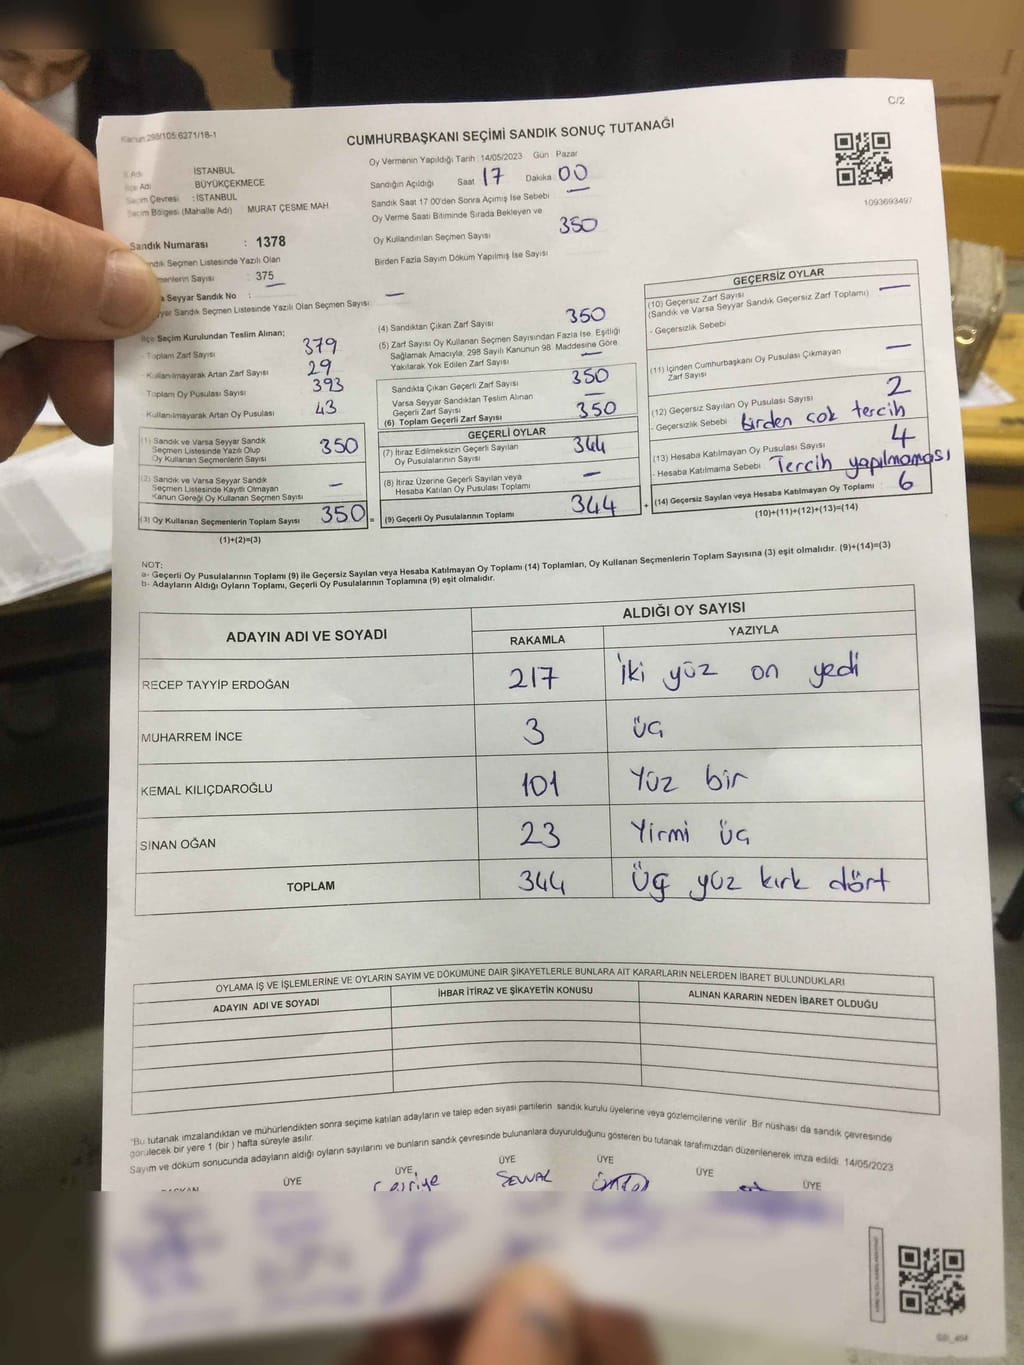 C/2
Kanun:298/105:6271/18-1
CUMHURBAŞKANI SEÇİMİ SANDIK SONUÇ TUTANAĞI
Oy Vermenin Yapıldığı Tarih :14/05/2023 Gün Pazar
İl Adı İSTANBUL
İlçe Adı BÜYÜKÇEKMECE
Seçim Çevresi : İSTANBUL
Seçim Bölgesi (Mahalle Adı) MURAT ÇEŞME MAH.
Sandığın Açıldığı Saat 17 Dakika 00
Sandık Saat 17:00'den Sonra Açımış İse Sebebi —
Oy Verme Saati Bitiminde Sırada Bekleyen ve
Oy Kullandırılan Seçmen Sayısı 350
Birden Fazla Sayım Döküm Yapılmış İse Sayısı
1093693497
Sandık Numarası : 1378
Sandık Seçmen Listesinde Yazılı Olan
Seçmenlerin Sayısı : 375
Varsa Seyyar Sandık No : —
Seyyar Sandık Seçmen Listesinde Yazılı Olan Seçmen Sayısı: —
İlçe Seçim Kurulundan Teslim Alınan;
- Toplam Zarf Sayısı 379
- Kullanılmayarak Artan Zarf Sayısı 29
- Toplam Oy Pusulası Sayısı 393
- Kullanılmayarak Artan Oy Pusulası 43
(1) Sandık ve Varsa Seyyar Sandık
Seçmen Listesinde Yazılı Olup
Oy Kullanan Seçmenlerin Sayısı 350
(2) Sandık ve Varsa Seyyar Sandık
Seçmen Listesinde Kayıtlı Olmayan
Kanun Gereği Oy Kullanan Seçmen Sayısı —
(3) Oy Kullanan Seçmenlerin Toplam Sayısı 350 =
(1)+(2)=(3)
(4) Sandıktan Çıkan Zarf Sayısı 350
(5) Zarf Sayısı Oy Kullanan Seçmen Sayısından Fazla İse, Eşitliği
Sağlamak Amacıyla, 298 Sayılı Kanunun 98. Maddesine Göre
Yakılarak Yok Edilen Zarf Sayısı —
Sandıkta Çıkan Geçerli Zarf Sayısı 350
Varsa Seyyar Sandıktan Teslim Alınan
Geçerli Zarf Sayısı —
(6) Toplam Geçerli Zarf Sayısı 350
GEÇERLİ OYLAR
(7) İtiraz Edilmeksizin Geçerli Sayılan
Oy Pusulalarının Sayısı 344
(8) İtiraz Üzerine Geçerli Sayılan veya
Hesaba Katılan Oy Pusulası Toplamı —
(9) Geçerli Oy Pusulalarının Toplamı 344 +
GEÇERSİZ OYLAR
(10) Geçersiz Zarf Sayısı
(Sandık ve Varsa Seyyar Sandık Geçersiz Zarf Toplamı) —
- Geçersizlik Sebebi
(11) İçinden Cumhurbaşkanı Oy Pusulası Çıkmayan
Zarf Sayısı —
(12) Geçersiz Sayılan Oy Pusulası Sayısı 2
- Geçersizlik Sebebi Birden çok tercih
(13) Hesaba Katılmayan Oy Pusulası Sayısı 4
- Hesaba Katılmama Sebebi Tercih yapılmaması
(14) Geçersiz Sayılan veya Hesaba Katılmayan Oy Toplamı 6
(10)+(11)+(12)+(13)=(14)
NOT:
a- Geçerli Oy Pusulalarının Toplamı (9) ile Geçersiz Sayılan veya Hesaba Katılmayan Oy Toplamı (14) Toplamları, Oy Kullanan Seçmenlerin Toplam Sayısına (3) eşit olmalıdır. (9)+(14)=(3)
b- Adayların Aldığı Oyların Toplamı, Geçerli Oy Pusulalarının Toplamına (9) eşit olmalıdır.
ADAYIN ADI VE SOYADI
ALDIĞI OY SAYISI
RAKAMLA YAZIYLA
RECEP TAYYİP ERDOĞAN 217 iki yüz on yedi
MUHARREM İNCE 3 üç
KEMAL KILIÇDAROĞLU 101 Yüz bir
SİNAN OĞAN 23 Yirmi üç
TOPLAM 344 Üç yüz kırk dört
OYLAMA İŞ VE İŞLEMLERİNE VE OYLARIN SAYIM VE DÖKÜMÜNE DAİR ŞİKAYETLERLE BUNLARA AİT KARARLARIN NELERDEN İBARET BULUNDUKLARI
ADAYIN ADI VE SOYADI İHBAR İTİRAZ VE ŞİKAYETİN KONUSU ALINAN KARARIN NEDEN İBARET OLDUĞU
"Bu tutanak imzalandıktan ve mühürlendikten sonra seçime katılan adayların ve talep eden siyasi partilerin sandık kurulu üyelerine veya gözlemcilerine verilir. Bir nüshası da sandık çevresinde
görülecek bir yere 1 (bir ) hafta süreyle asılır.
Sayım ve döküm sonucunda adayların aldığı oyların sayılarını ve bunların sandık çevresinde bulunanlara duyurulduğunu gösteren bu tutanak tarafımızdan düzenlenerek imza edildi. 14/05/2023
BAŞKAN ÜYE ÜYE ÜYE ÜYE ÜYE ÜYE